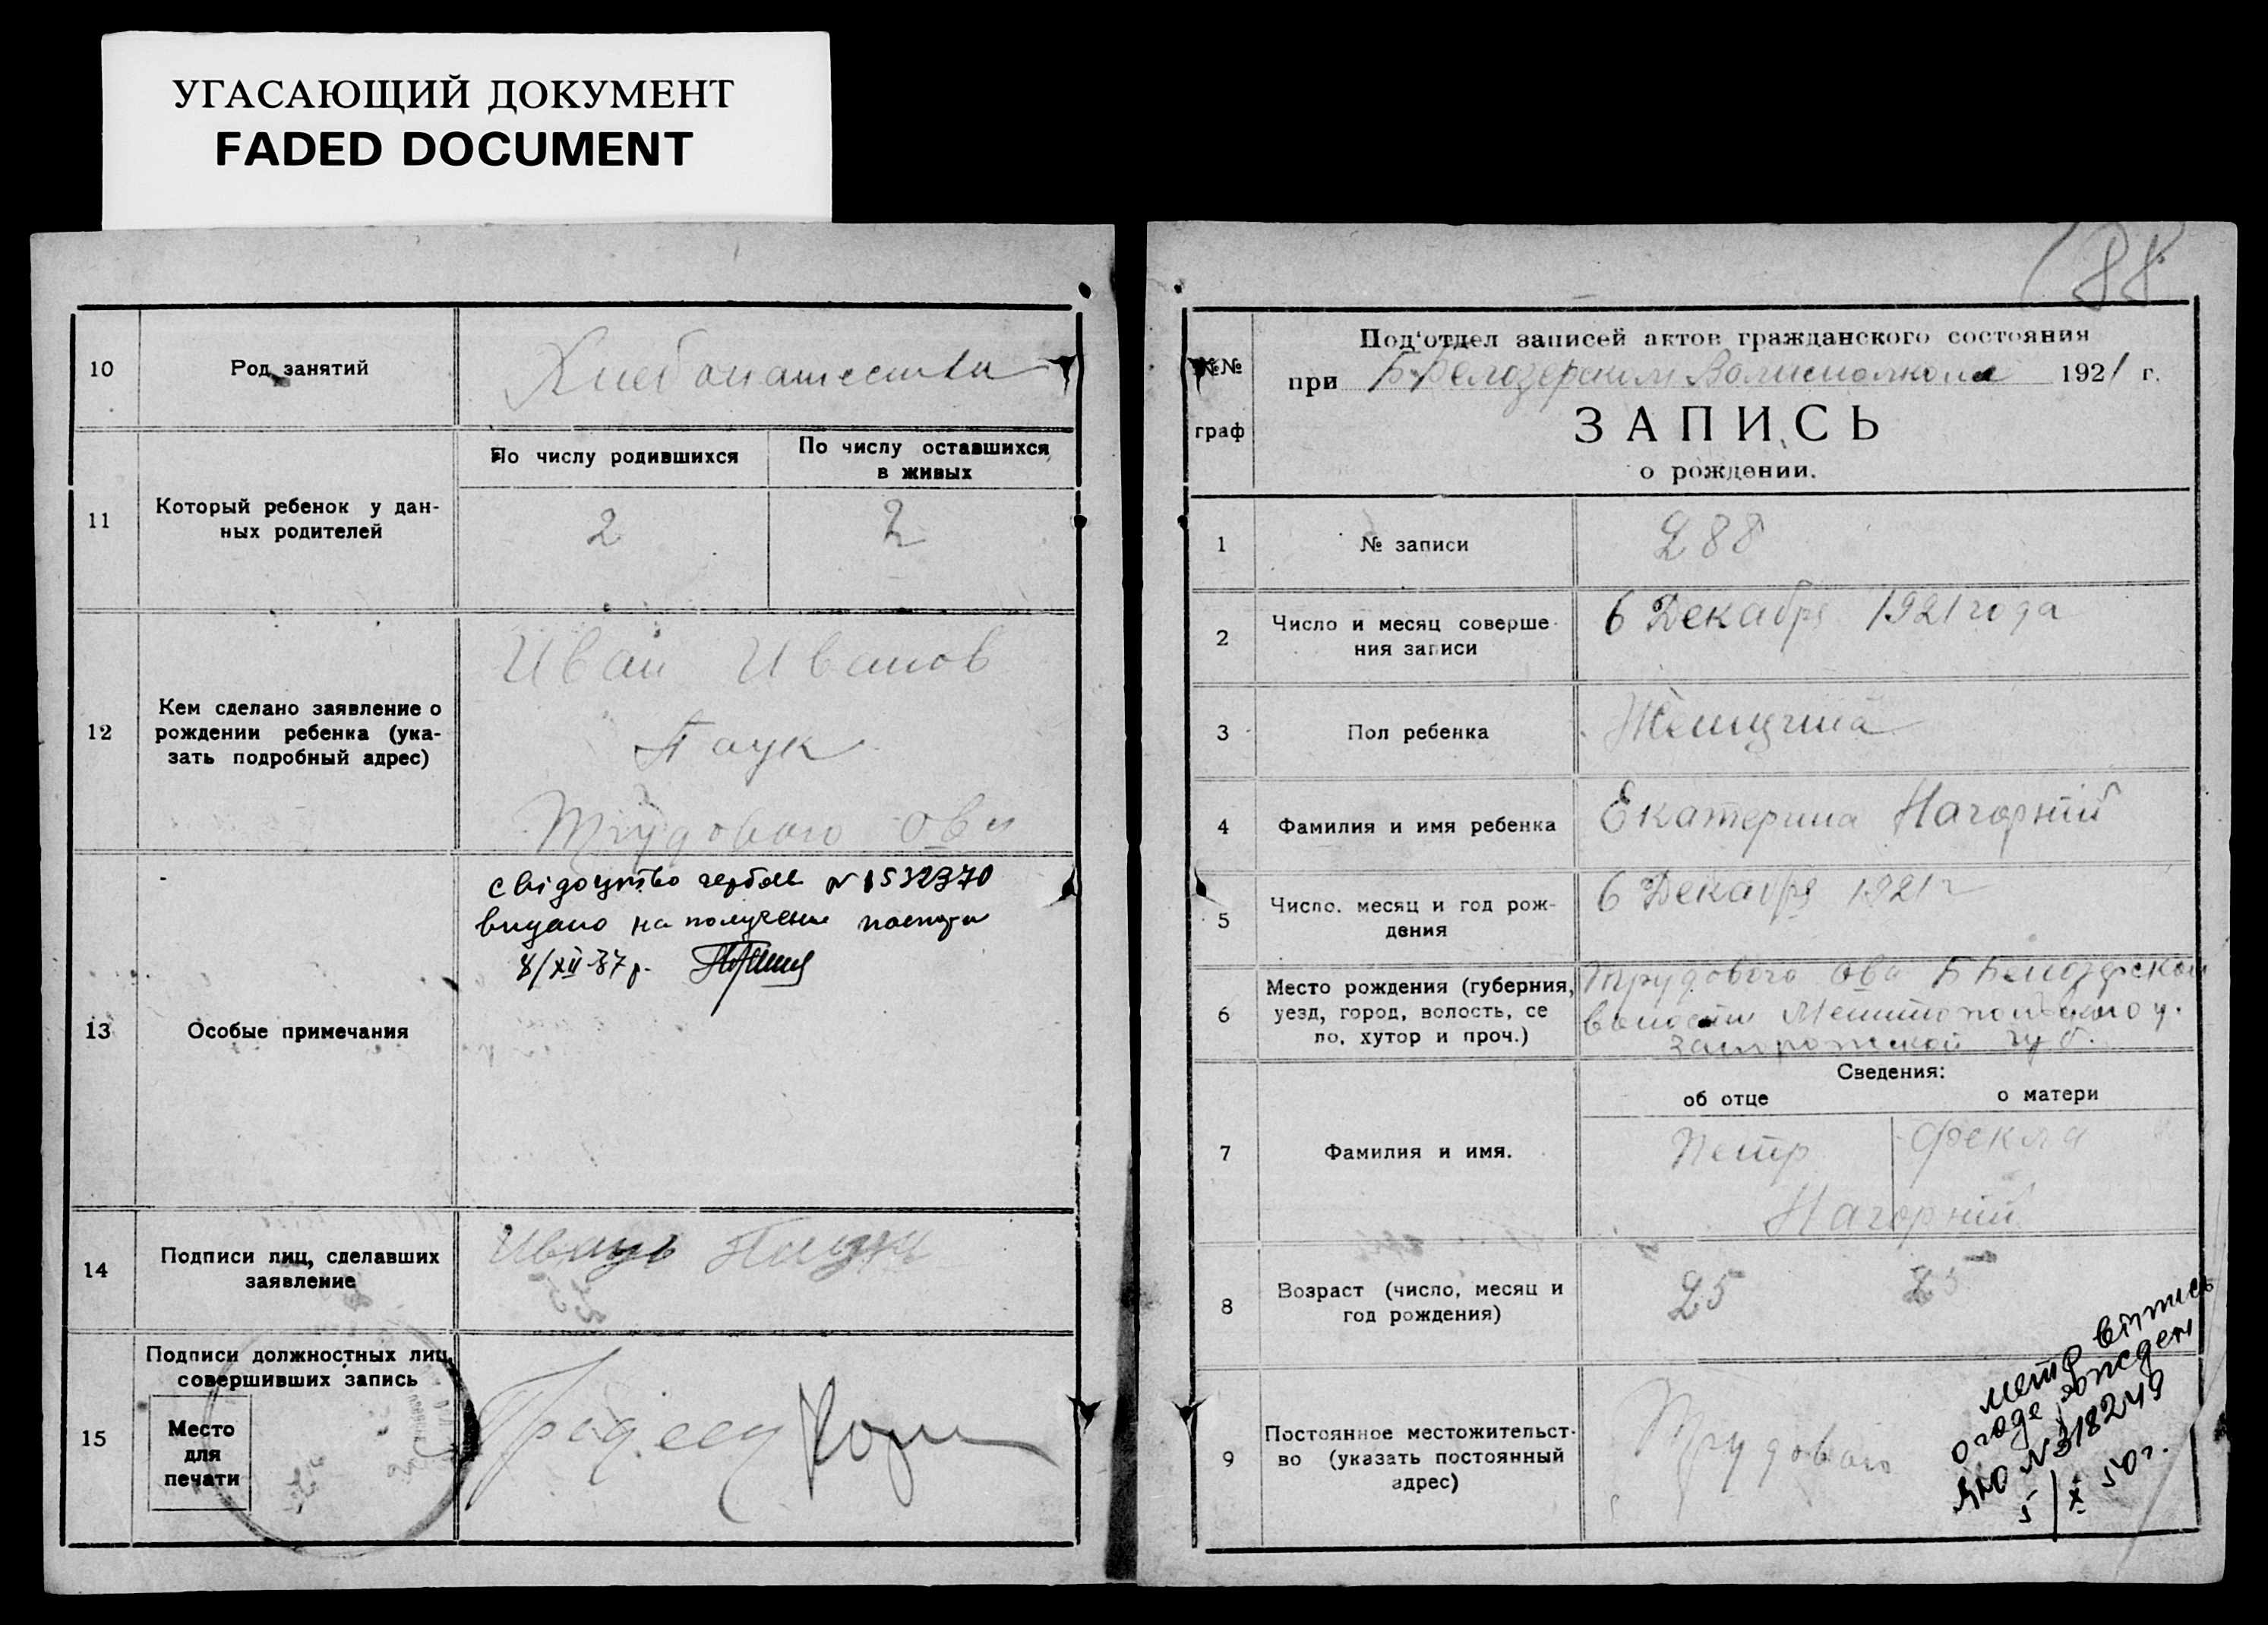 УГАСАЮЩИЙ ДОКУМЕНТ
FADED DOCUMENT
10
Род занятий
Хлебопашество
11
Который ребенок у дан-
ных родителей
По числу родившихся
По числу оставшихся
в живых
2
2
12
Кем сделано заявление о
рождении ребенка (ука-
зать подробный адрес)
Иван Иванов
Паук
Трудового О-ва
13
Особые примечания
свідоцтво
видано на получение
8/XII-37 р.
14
Подписи лиц, сделавших
заявление
Иванъ Паукъ
15
Подписи должностных лиц,
совершивших запись
Место
для
печати
88
№№
граф
Под'отдел записей актов гражданского состояния
при Б Белозерском Волисполкоме 1921 г.
ЗАПИСЬ
о рождении.
1
№ записи
288
2
Число и месяц соверше-
ния записи
6 Декабря 1921 года
3
Пол ребенка
Женщина
4
Фамилия и имя ребенка
Екатерина Нагорний
5
Число, месяц и год рож-
дения
6 Декабря 1921 г
6
Место рождения (губерния,
уезд, город, волость, се
ло, хутор и проч.)
Трудового О-ва Б Белозерской
волости Мелитопольского у.
Запорожской губ.
Сведения:
об отце
о матери
7
Фамилия и имя.
Петр
Фекла
Нагорний
8
Возраст (число, месяц и
год рождения)
25
25
9
Постоянное местожительст-
во (указать постоянный
адрес)
Трудового
метр выпись
о рожден
№ 318249
5/X 50 г.